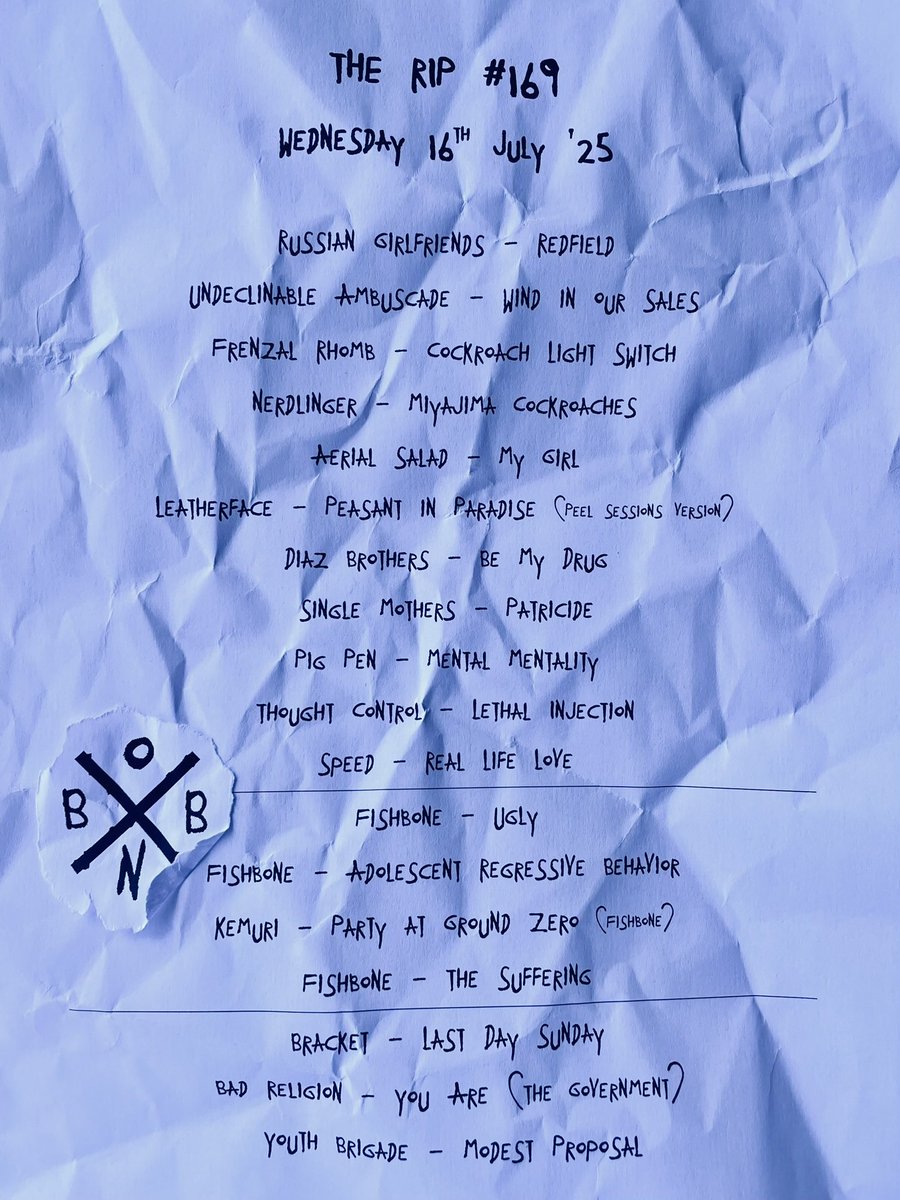 THE RIP #169
WEDNESDAY 16TH JULY '25
RUSSIAN GIRLFRIENDS – REDFIELD
UNDECLINABLE AMBUSCADE – WIND IN OUR SALES
FRENZAL RHOMB – COCKROACH LIGHT SWITCH
NERDLINGER – MIYAJIMA COCKROACHES
AERIAL SALAD – MY GIRL
LEATHERFACE – PEASANT IN PARADISE (PEEL SESSIONS VERSION)
DIAZ BROTHERS – BE MY DRUG
SINGLE MOTHERS – PATRICIDE
PIG PEN – MENTAL MENTALITY
THOUGHT CONTROL – LETHAL INJECTION
SPEED – REAL LIFE LOVE
O
B B
N
FISHBONE – UGLY
FISHBONE – ADOLESCENT REGRESSIVE BEHAVIOR
KEMURI – PARTY AT GROUND ZERO (FISHBONE)
FISHBONE – THE SUFFERING
BRACKET – LAST DAY SUNDAY
BAD RELIGION – YOU ARE (THE GOVERNMENT)
YOUTH BRIGADE – MODEST PROPOSAL